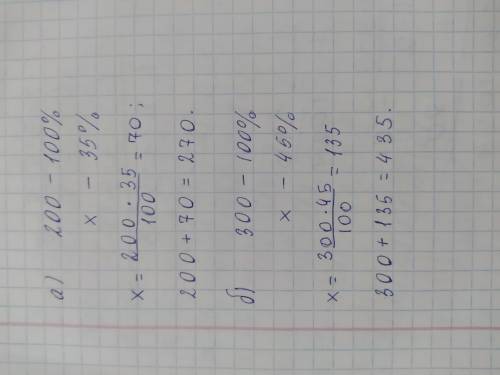 а) 200 - 100%
x - 35%
x = 200 · 35 / 100 = 70;
200 + 70 = 270.
б) 300 - 100%
x - 45%
x = 300 · 45 / 100 = 135
300 + 135 = 435.